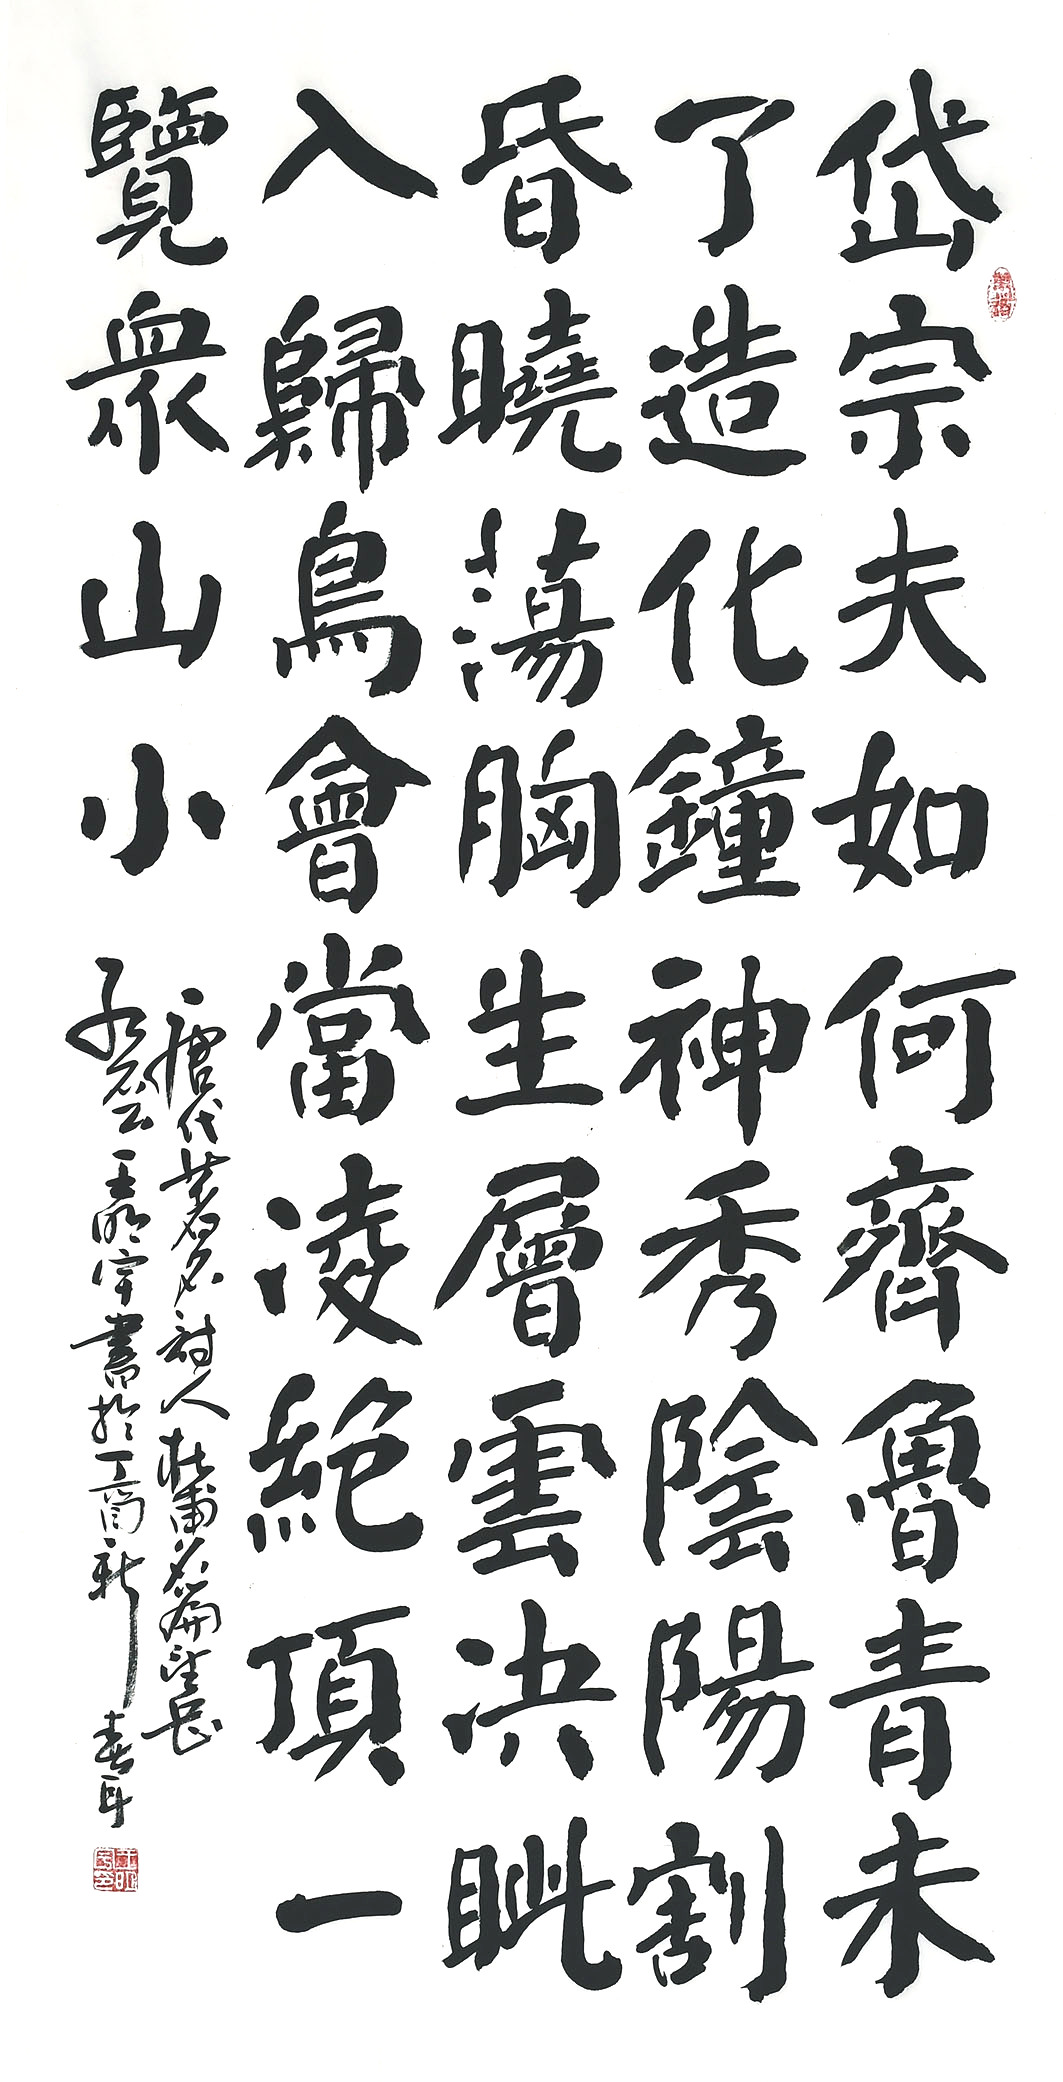 岱宗夫如何齊魯青未
了造化鐘神秀陰陽割
昏曉蕩胸生層雲决眦
入歸鳥會當凌絶頂一
覽衆山小
唐代著名詩人杜甫名篇望岳
王明宇書於